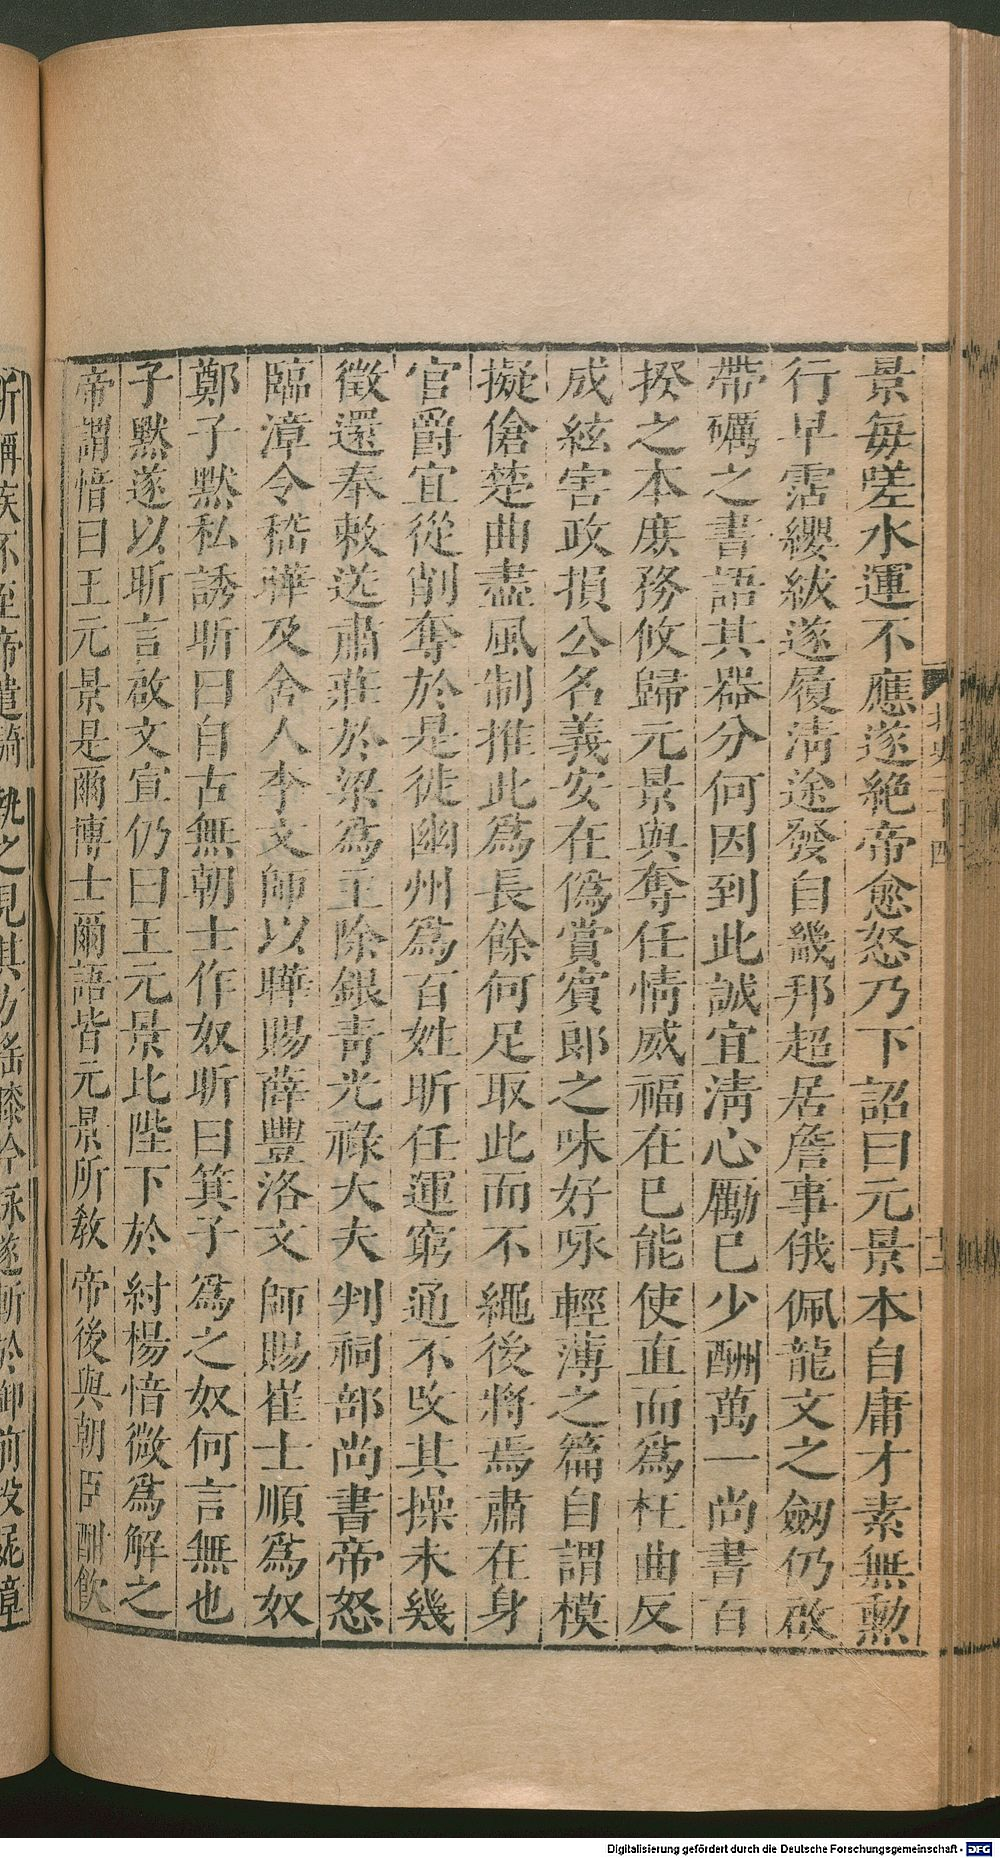 景每嗟水運不應遂絕帝愈怒乃下詔曰元景本自庸才素無勲
行早霑纓紱遂履淸途發自畿邦超居詹事俄佩龍文之劒仍啟
帶礪之書語其器分何因到此誠宜淸心勵已少酬萬一尚書百
揆之本庶務攸歸元景與奪任情威福在已能使直而爲枉曲反
成絃害政損公名義安在僞賞賓郎之味好咏輕薄之篇自謂模
擬傖楚曲盡風制推此爲長餘何足取此而不繩後將焉肅在身
官爵宜從削奪於是徙幽州爲百姓昕任運窮通不改其操未幾
徵還奉敕送肅莊於梁爲主除銀靑光祿大夫判祠部尚書帝怒
臨漳令嵇曄及舍人李文師以曄賜薛豐洛文師賜崔士順爲奴
鄭子默私誘昕曰自古無朝士作奴昕曰箕子爲之奴何言無也
子默遂以昕言啟文宣仍曰王元景比陛下於紂楊愔微爲解之
帝謂愔曰王元景是爾博士爾語皆元景所敎帝後與朝臣酣飮
昕稱疾不至帝遣騎執之見其方搖膝吟咏遂斬於御前投屍漳
北史
Digitalisierung gefördert durch die Deutsche Forschungsgemeinschaft - DFG